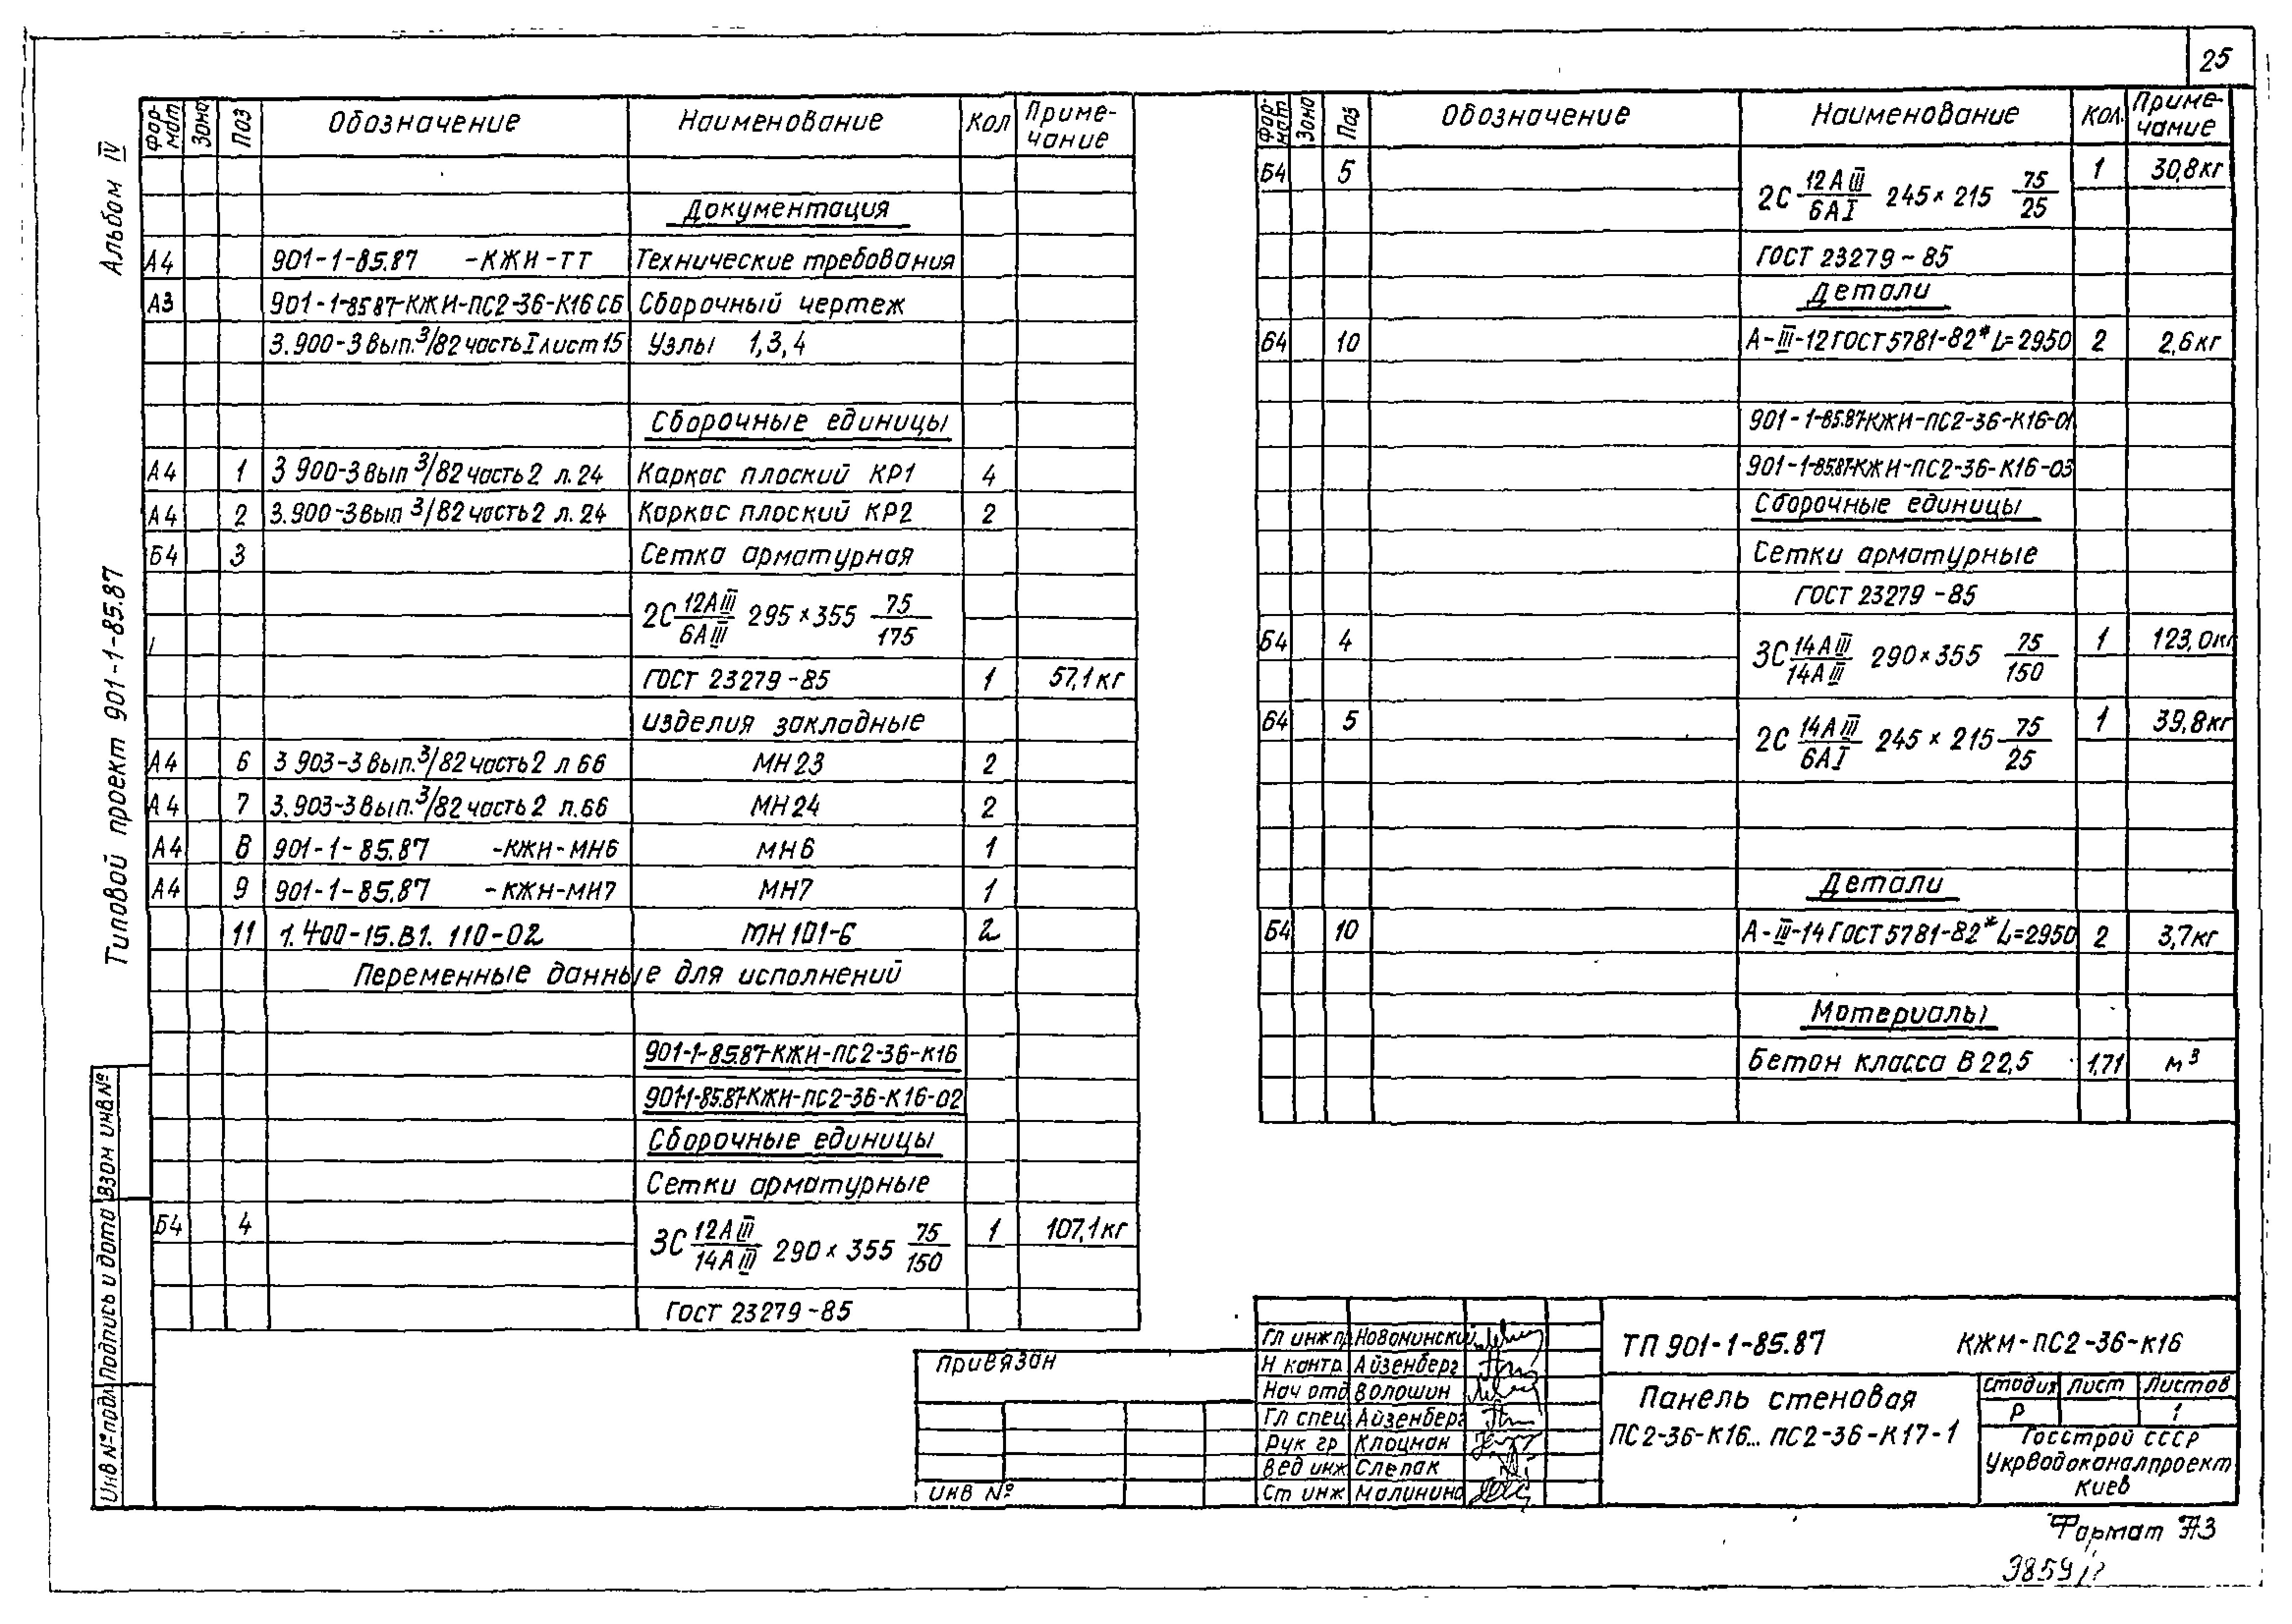 25
Альбом IV
Типовой проект 901-1-85.87
Фор-мат Зона Поз Обозначение Наименование Кол Приме-чание
Документация
А4 901-1-85.87 -КЖИ-ТТ Технические требования
А3 901-1-85 87-КЖИ-ПС2-36-К16 СБ Сборочный чертеж
3.900-3 вып.3/82 часть I лист 15 Узлы 1,3,4
Сборочные единицы
А4 1 3 900-3 вып 3/82 часть 2 л.24 Каркас плоский КР1 4
А4 2 3.900-3 вып 3/82 часть 2 л.24 Каркас плоский КР2 2
Б4 3 Сетка арматурная
2С 12АIII/6АIII 295×355 75/175
ГОСТ 23279-85 1 57,1 кг
изделия закладные
А4 6 3 903-3 вып.3/82 часть 2 л 66 МН23 2
А4 7 3.903-3 вып.3/82 часть 2 л.66 МН24 2
А4 8 901-1-85.87 -КЖИ-МН6 МН6 1
А4 9 901-1-85.87 -КЖИ-МН7 МН7 1
11 1.400-15.В1. 110-02 МН101-6 2
Переменные данные для исполнений
901-1-85.87-КЖИ-ПС2-36-К16
901-1-85.87-КЖИ-ПС2-36-К16-02
Сборочные единицы
Сетки арматурные
Б4 4 3С 12АIII/14АIII 290×355 75/150 1 107,1 кг
ГОСТ 23279-85
Фор-мат Зона Поз Обозначение Наименование Кол. Приме-чание
Б4 5 2С 12АIII/6АI 245×215 75/25 1 30,8 кг
ГОСТ 23279-85
Детали
Б4 10 А-III-12 ГОСТ 5781-82* L=2950 2 2,6 кг
901-1-85.87-КЖИ-ПС2-36-К16-01
901-1-85.87-КЖИ-ПС2-36-К16-03
Сборочные единицы
Сетки арматурные
ГОСТ 23279-85
Б4 4 3С 14АIII/14АIII 290×355 75/150 1 123,0 кг
Б4 5 2С 14АIII/6АI 245×215 75/25 1 39,8 кг
Детали
Б4 10 А-III-14 ГОСТ 5781-82* L=2950 2 3,7 кг
Материалы
Бетон класса В 22,5 1,71 м³
Инв № подл. Подпись и дата Взам инв №
Привязан
Инв №
Гл инж пр. Новоминский
Н контр. Айзенберг
Нач отд Волошин
Гл спец Айзенберг
Рук гр Клоцман
Вед инж Слепак
Ст инж Малинина
ТП 901-1-85.87 КЖИ-ПС2-36-К16
Панель стеновая
ПС2-36-К16... ПС2-36-К17-1
Стадия Лист Листов
Р 1
Госстрой СССР
Укрводоканалпроект
Киев
Формат А3